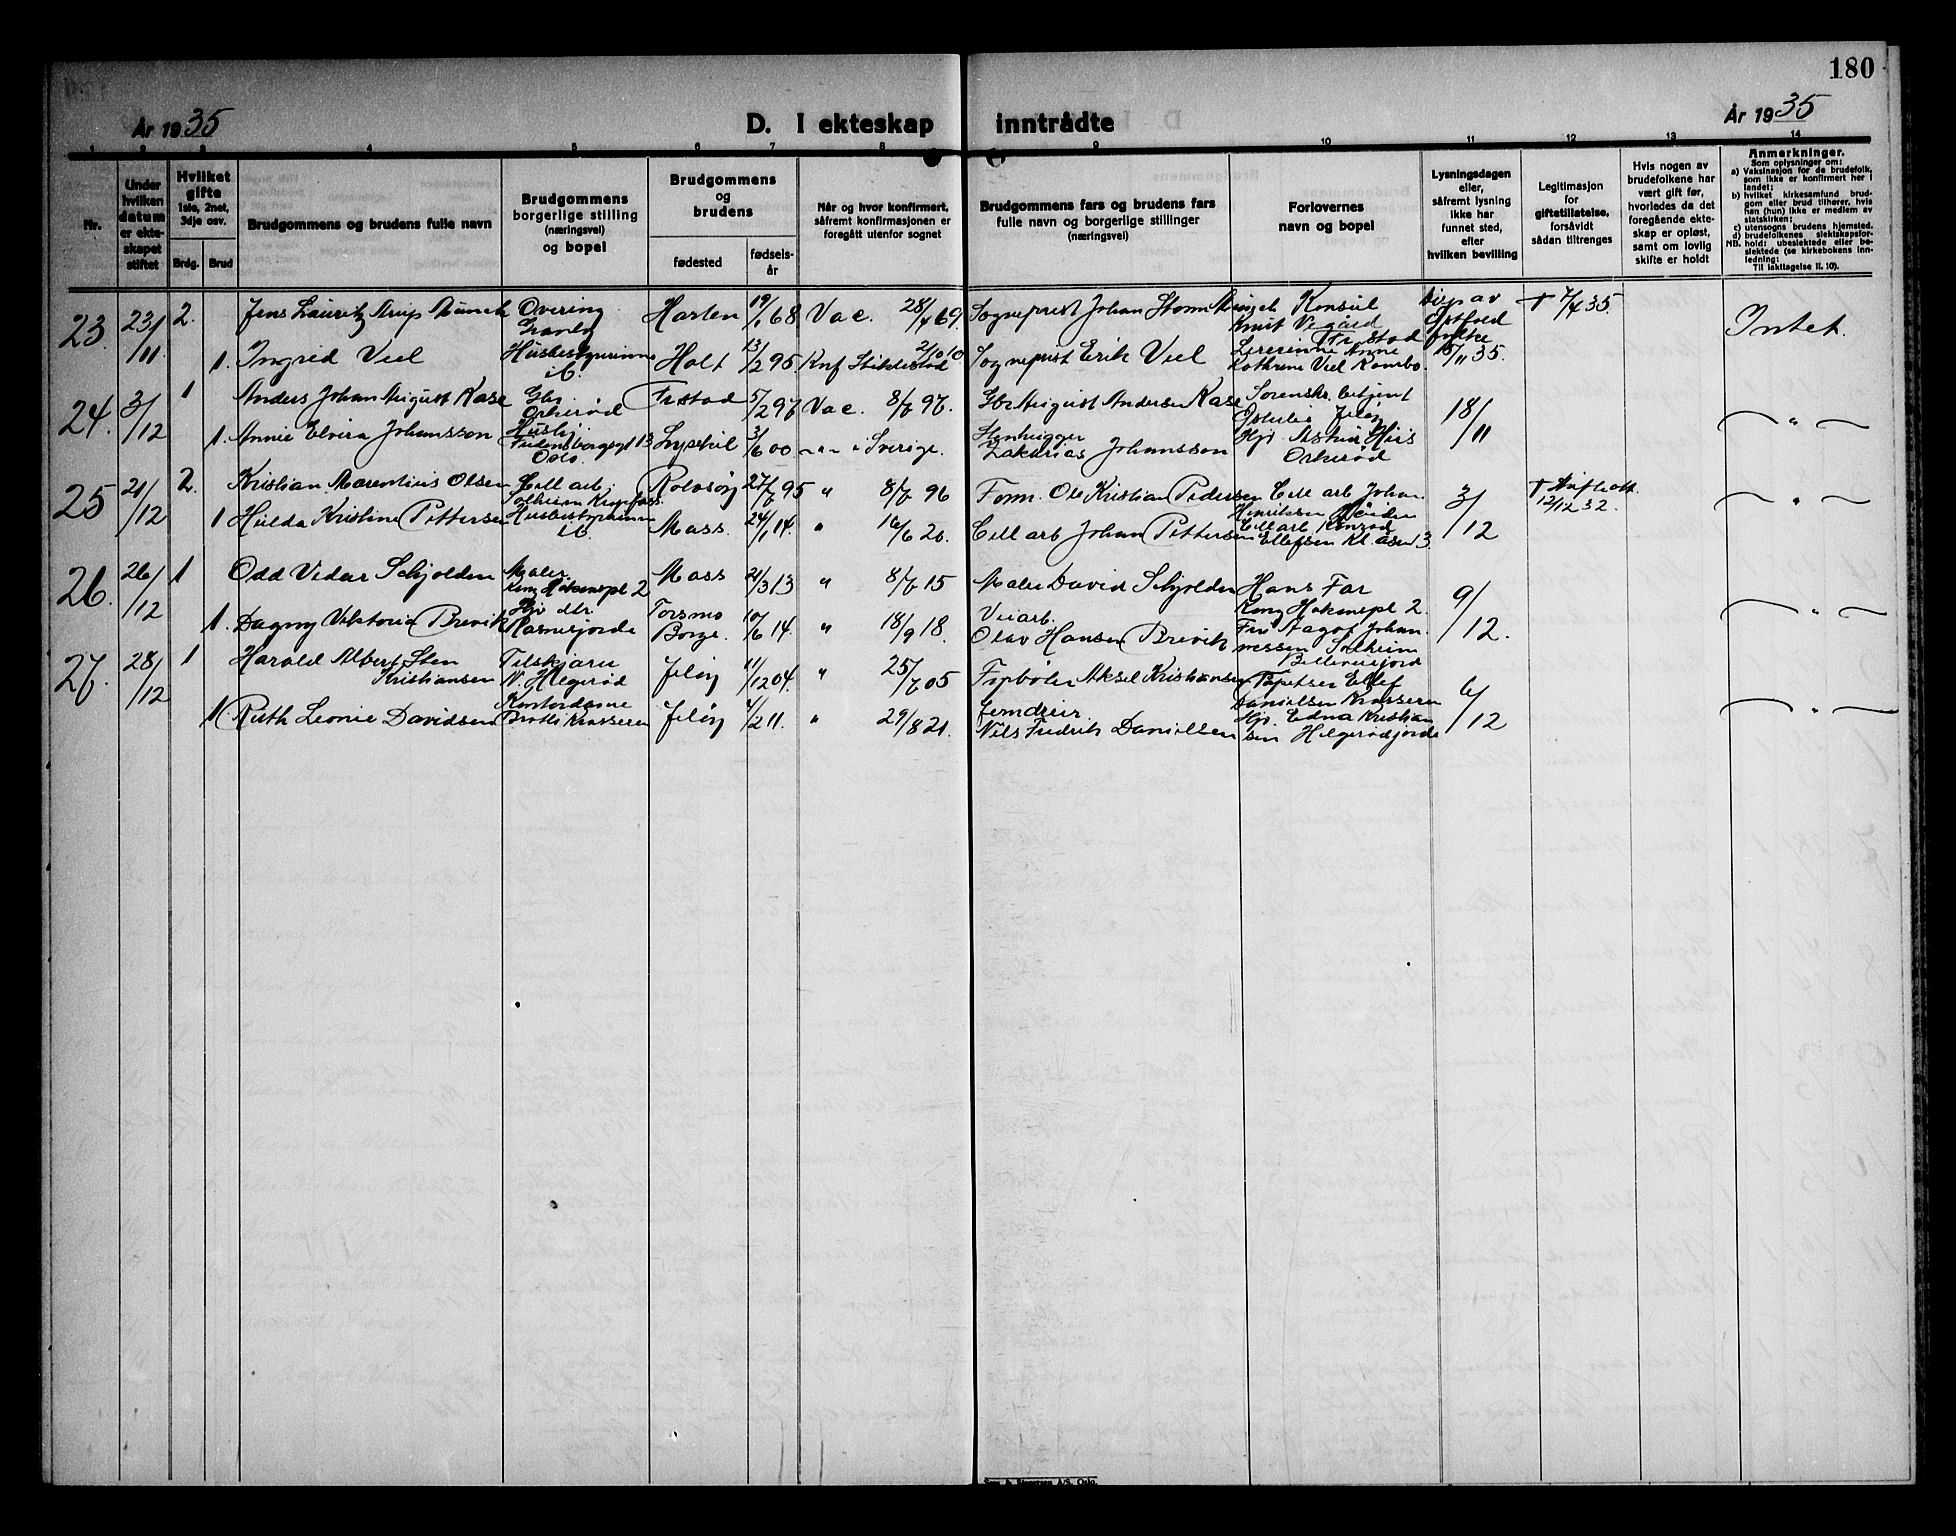 180
År 1935
D. I ekteskap inntrådte
År 1935
1 2 3 4 5 6 7 8 9 10 11 12 13 14
Nr.
Under hvilken datum er ekteskapet stiftet
Hvilket gifte 1ste, 2net, 3dje osv.
Brdg. Brud
Brudgommens og brudens fulle navn
Brudgommens borgerlige stilling (næringsvei) og bopel
Brudgommens og brudens
fødested fødselsår
Når og hvor konfirmert, såfremt konfirmasjonen er foregått utenfor sognet
Brudgommens fars og brudens fars fulle navn og borgerlige stillinger (næringsvei)
Forlovernes navn og bopel
Lysningsdagen eller, såfremt lysning ikke har funnet sted, efter hvilken bevilling
Legitimasjon for giftetillatelse, forsåvidt sådan tiltrenges
Hvis nogen av brudefolkene har vært gift før, hvorledes da det foregående ekteskap er opløst, samt om lovlig skifte er holdt
Anmerkninger.
Som oplysninger om:
a) Vaksinasjon for de brudefolk, som ikke er konfirmert her i landet;
b) hvilket kirkesamfund brudgom eller brud tilhører, hvis han (hun) ikke er medlem av statskirken;
c) utensogns brudens hjemsted.
d) brudefolkenes slektskapsforhold: ubeslektede eller beslektede (se kirkebokens innledning:
NB.
Til iakttagelse II. 10).
23. 23/11 2. Jens Lauritz Arup Münch Overing Horten 19/1 68 Vac. 28/4 69. Sogneprest Johan Storm Münch Konsul Knut Vegård Fr.stad Østfold fylke 15/11 35. + 7/4 35 Intet.
1. Ingrid Viel Husbestyrerinne ib. Holt 13/2 95. Knf Stiklestad Sogneprest Erik Viel Lererinne Anne Kathrine Viel Kambo.
24. 3/12 1 Anders Johan August Kase Gbr. Orkerød Fr.stad 5/2 97 Vac. 8/6 97. Gbr August Andersen Kase Sorenskr. betjent Jeløy 18/11 — " —
1. Annie Elvira Johansson Oslo Lysekil 3/6 00 — " — i Sverige. Stenhugger Zakarias Johansson Orkerød
25 21/12 2. Kristian Marentius Olsen Cell arb. Rolvsøy 27/7 95 " 8/6 96 Form. Ole Kristian Pedersen Cell arb Johan Henriksen 3/12 + 12/12 32. — " —
1 Hulda Kristine Pettersen Husbestyrerinne ib. Moss. 24/1 14. " 16/6 20. Cell arb Johan Pettersen Cell arb Konrad Ellefsen Kl. åsen 3.
26. 26/12 1 Odd Vidar Schjolden Maler. Kong Hakonspl 2 Moss 21/3 13 " 8/6 15 Maler David Schjolden Hans Far Kong Hakonspl 2. 9/12. — " —
1. Dagny Viktoria Brevik Torsmo Borge. 10/6 14. " 18/9 18. Veiarb. Olav Hansen Brevik Fru Aagot Johannessen Solheim Bellevuejord
27. 28/12 1 Harald Albert Sten Kristiansen N. Helgerød Jeløy 11/12 04. " 25/6 05 Fyrbøter Aksel Kristiansen Tapetser Ellef Danielsen Krosseren 6/12 — " —
1. Ruth Leonie Davidsen Kontordame Krosseren Jeløy 4/2 11. " 29/8 21. Jerndreier Nils Fredrik Danielsen Hjv. Edna Kristiansen Helgerødjorde